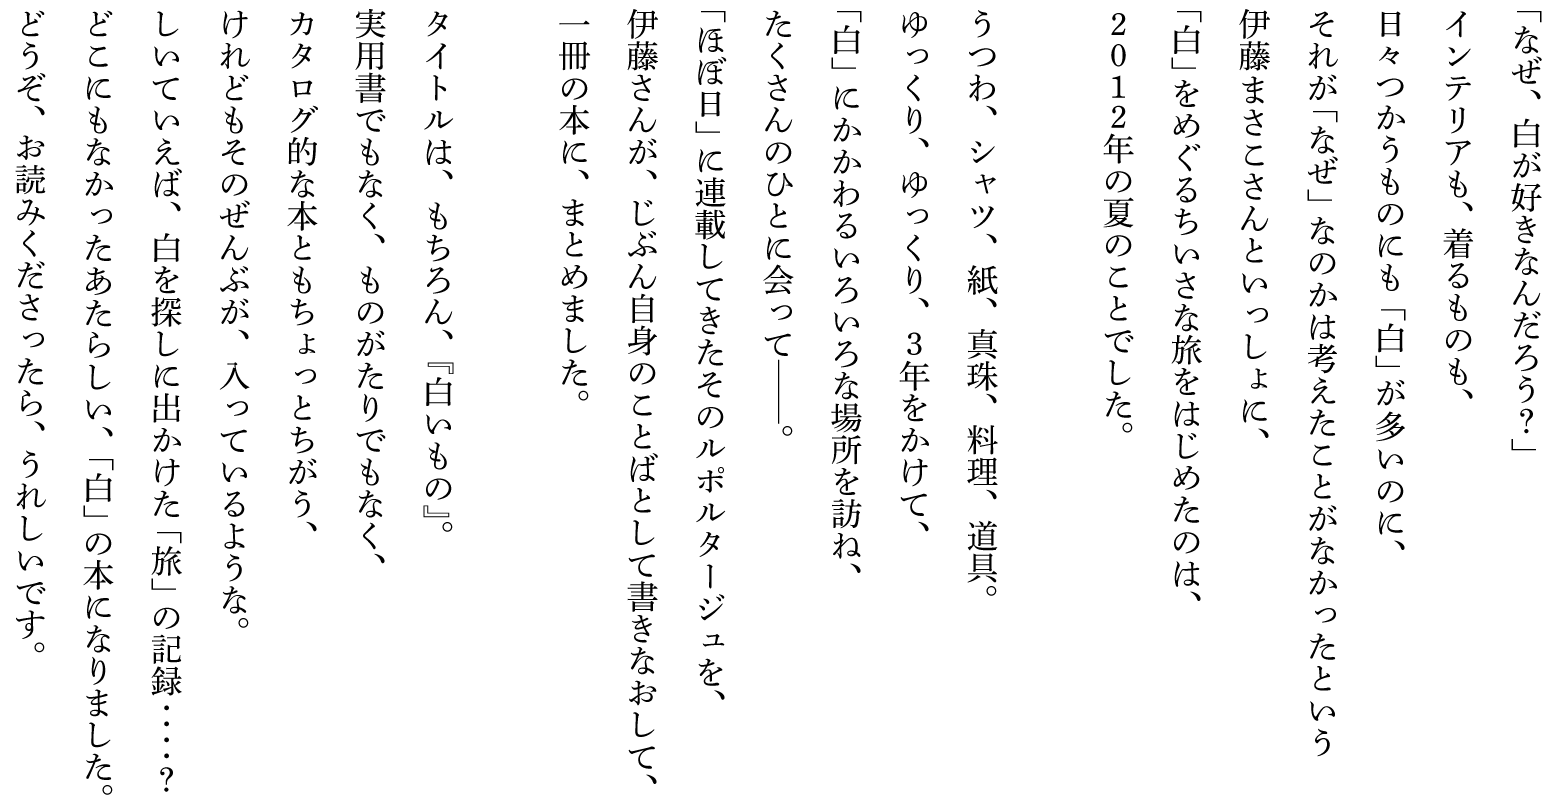 「なぜ、白が好きなんだろう？」
インテリアも、着るものも、
日々つかうものにも「白」が多いのに、
それが「なぜ」なのかは考えたことがなかったという
伊藤まさこさんといっしょに、
「白」をめぐるちいさな旅をはじめたのは、
2012年の夏のことでした。
うつわ、シャツ、紙、真珠、料理、道具。
ゆっくり、ゆっくり、3年をかけて、
「白」にかかわるいろいろな場所を訪ね、
たくさんのひとに会って――。
「ほぼ日」に連載してきたそのルポルタージュを、
伊藤さんが、じぶん自身のことばとして書きなおして、
一冊の本に、まとめました。
タイトルは、もちろん、『白いもの』。
実用書でもなく、ものがたりでもなく、
カタログ的な本ともちょっとちがう、
けれどもそのぜんぶが、入っているような。
しいていえば、白を探しに出かけた「旅」の記録‥‥？
どこにもなかったあたらしい、「白」の本になりました。
どうぞ、お読みくださったら、うれしいです。